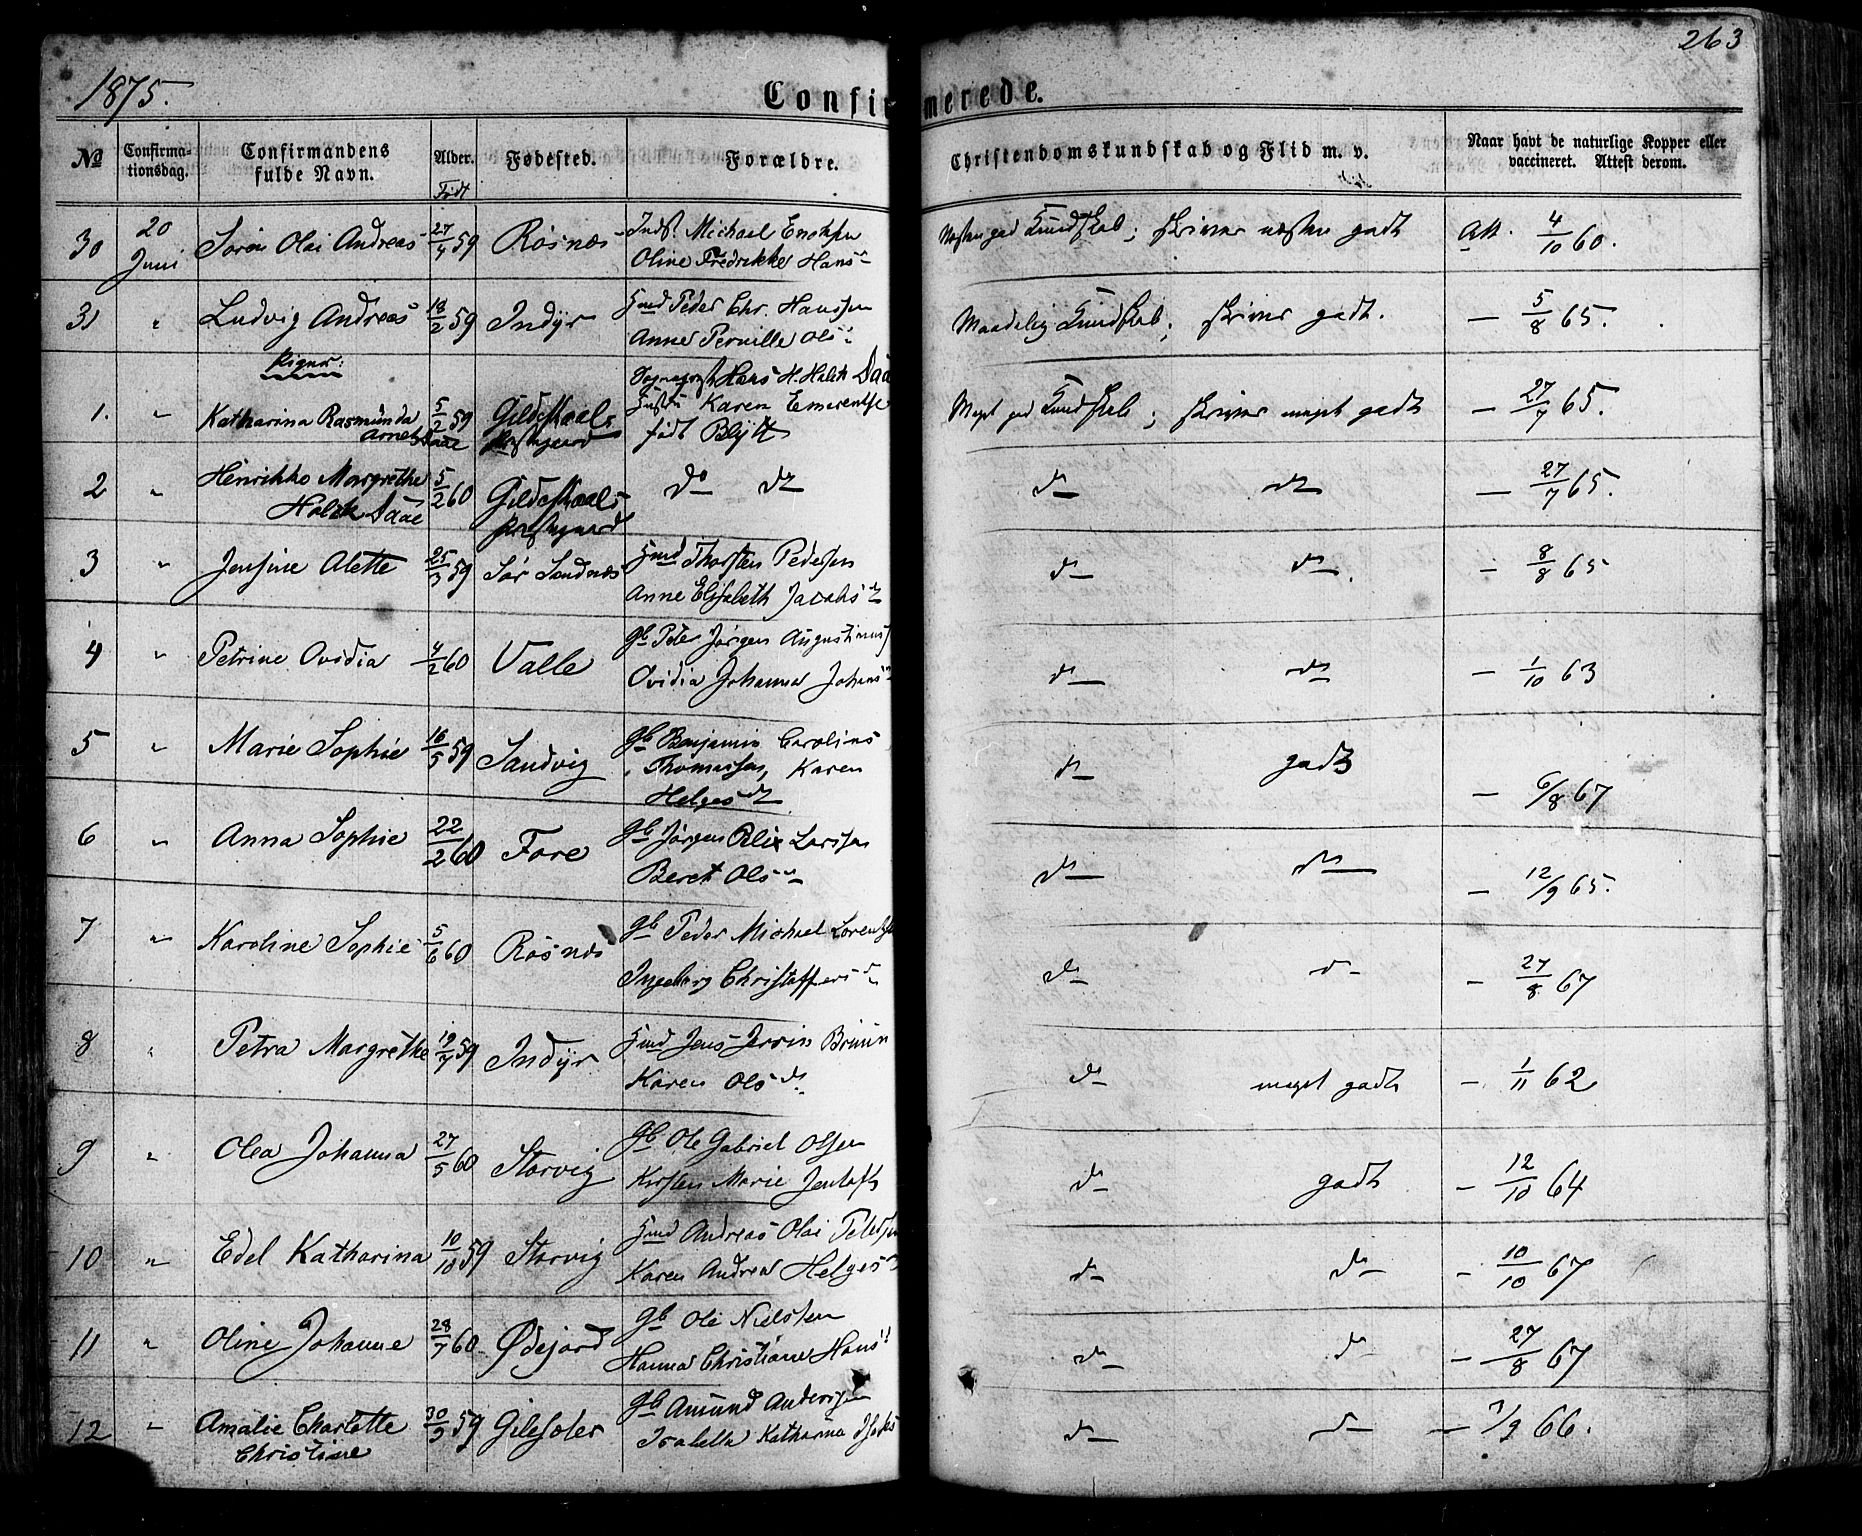 263
1875.
Confirmerede.
№
Confirma-
tionsdag.
Confirmandens
fulde Navn.
Alder.
Født
Fødested.
Forældre.
Christendomskundskab og Flid m. v.
Naar havt de naturlige Kopper eller
vaccineret. Attest derom.
30 20 Juni Søren Olai Andreas 27/4 59 Røsnæs Indst Michael
Oline Fredrikke Hans
Næsten god Kundskab; skriver næsten godt Att. 4/10 60.
31 " Ludvig Andreas 18/2 59 Indyr Hmd Peder Chr. Hanssen
Anne Pernille Ols
Maadelig Kundskab; skriver godt. — 5/8 65.
Piger:
1. " Katharina Rasmünda 5/2 59 Gildeskaals Hans H. Holck Daae
Daae Præstegaard Hustru Karen
født Blytt
Meget god Kundskab; skriver meget godt — 27/7 65.
2 " Henrikke Margrethe 5/2 60 Gildeskaals do do
Holck Daae Præstegaard
do do — 27/7 65.
3 " Jensine Alette 25/3 59 Sør Sandnæs Hmd Thorsten Pedersen
Anne Elisabeth Jacobsd
do do — 8/8 65
4 " Petrine Ovidia 4/2 60 Valle Gb Peter Jørgen Augustinus
Ovidia Johanna Johans
do do — 1/10 63
5 " Marie Sophie 16/5 59 Sandvig Gb Benjamin Carolius
Thomassen, Karen
Helgesd
do godt — 6/8 67
6 " Anna Sophie 22/2 60 Fore Gb Jørgen Larssen
Beret Ols
do do — 12/9 65.
7 " Karoline Sophie 5/6 60 Røsnæs Gb Peder Michael Lorents
Ingeborg Christoffersd
do d — 27/8 67
8 " Petra Margrethe 19/7 59 Indyr Hmd Jens Bruun
Karen Olsd
do meget godt — 1/11 62
9 " Olea Johanna 27/5 60 Storvig Gb Ole Gabriel Olsen
Kirsten Marie Jentoft
do godt — 12/10 64
10 " Edel Katharina 10/10 59 Storvig Hmd Andreas Olai Peders
Karen Andrea Helgesd
do do — 10/10 67
11 " Oline Johanne 28/7 60 Ødejord Gb Ole Nielsen
Hanna Christiane Hans
do d — 27/8 67
12 " Amalie Charlotte 59 Gilesæter Gb Amund Anderssen
Christine Isabella Katharina
do d — 66.